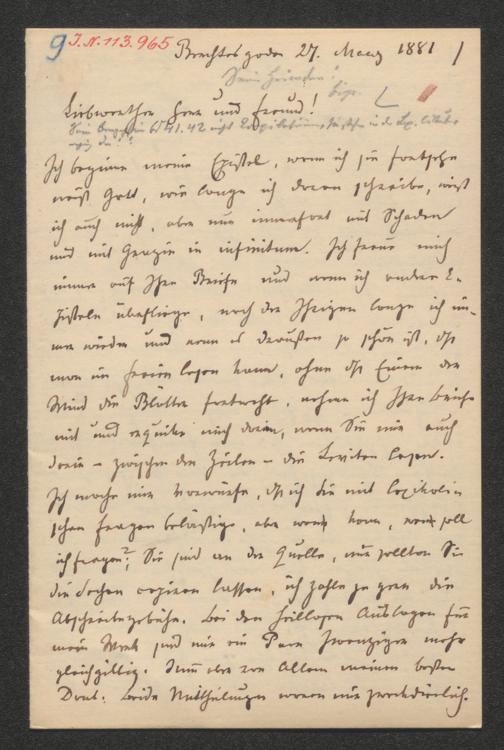 9 J.N. 113.965 Berchtesgaden 27. März 1881 /
Liebwerther Herr und Freund!
Ich beginne meine Epistel, wenn ich sie fortsetze
weiß Gott, wie lange ich daran schreibe, weiß
ich auch nicht, aber nur immerfort mit Schaden
und mit Grazie in infinitum. Ich freue mich
immer auf Ihre Briefe und wenn ich andere E-
pisteln überfliege, nach der Ihrigen lange ich im-
mer wieder und wenn es draußen so schön ist, daß
man im Freien lesen kann, ohne daß Einem der
Wind die Blätter verweht, nehme ich Ihre Briefe
mit und erquicke mich daran, wenn Sie mir auch
darin – zwischen den Zeilen – die Leviten lesen.
Ich mache mir Vorwürfe, daß ich Sie mit lexikalin
schen Fragen belästige, aber wen kann, wen soll
ich fragen? Sie sind an der Quelle, nur sollten Sie
die Sachen copiren lassen, ich zahle ja gern die
Abschreibgebühr. Bei den heillosen Auslagen für
mein Werk sind mir ein Paar Zwanziger mehr
gleichgiltig. Zuvor aber vor Allem meinen besten
Dank. Beide Mittheilungen waren mir zweckdienlich.